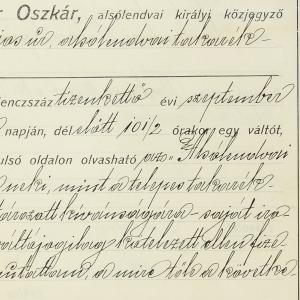 r Oszkár, alsólendvai királyi közjegyző
ias úr, alsólendvai takarék-
lenczszáz tizenkettő évi szeptember
napján, dél előtt 10 1/2 órakor egy váltót,
ulsó oldalon olvasható azo "Alsólendvai
neki, mint a telepes takarék-
ározott kivánságára - saját iro
váltójogilag kötelzett ellen fize
mutattam, a mire tőle a követke